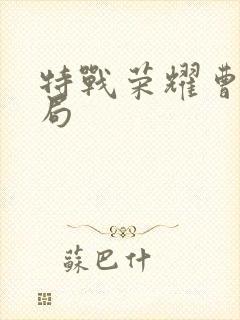 特戰荣耀曹
局
蘇巴什